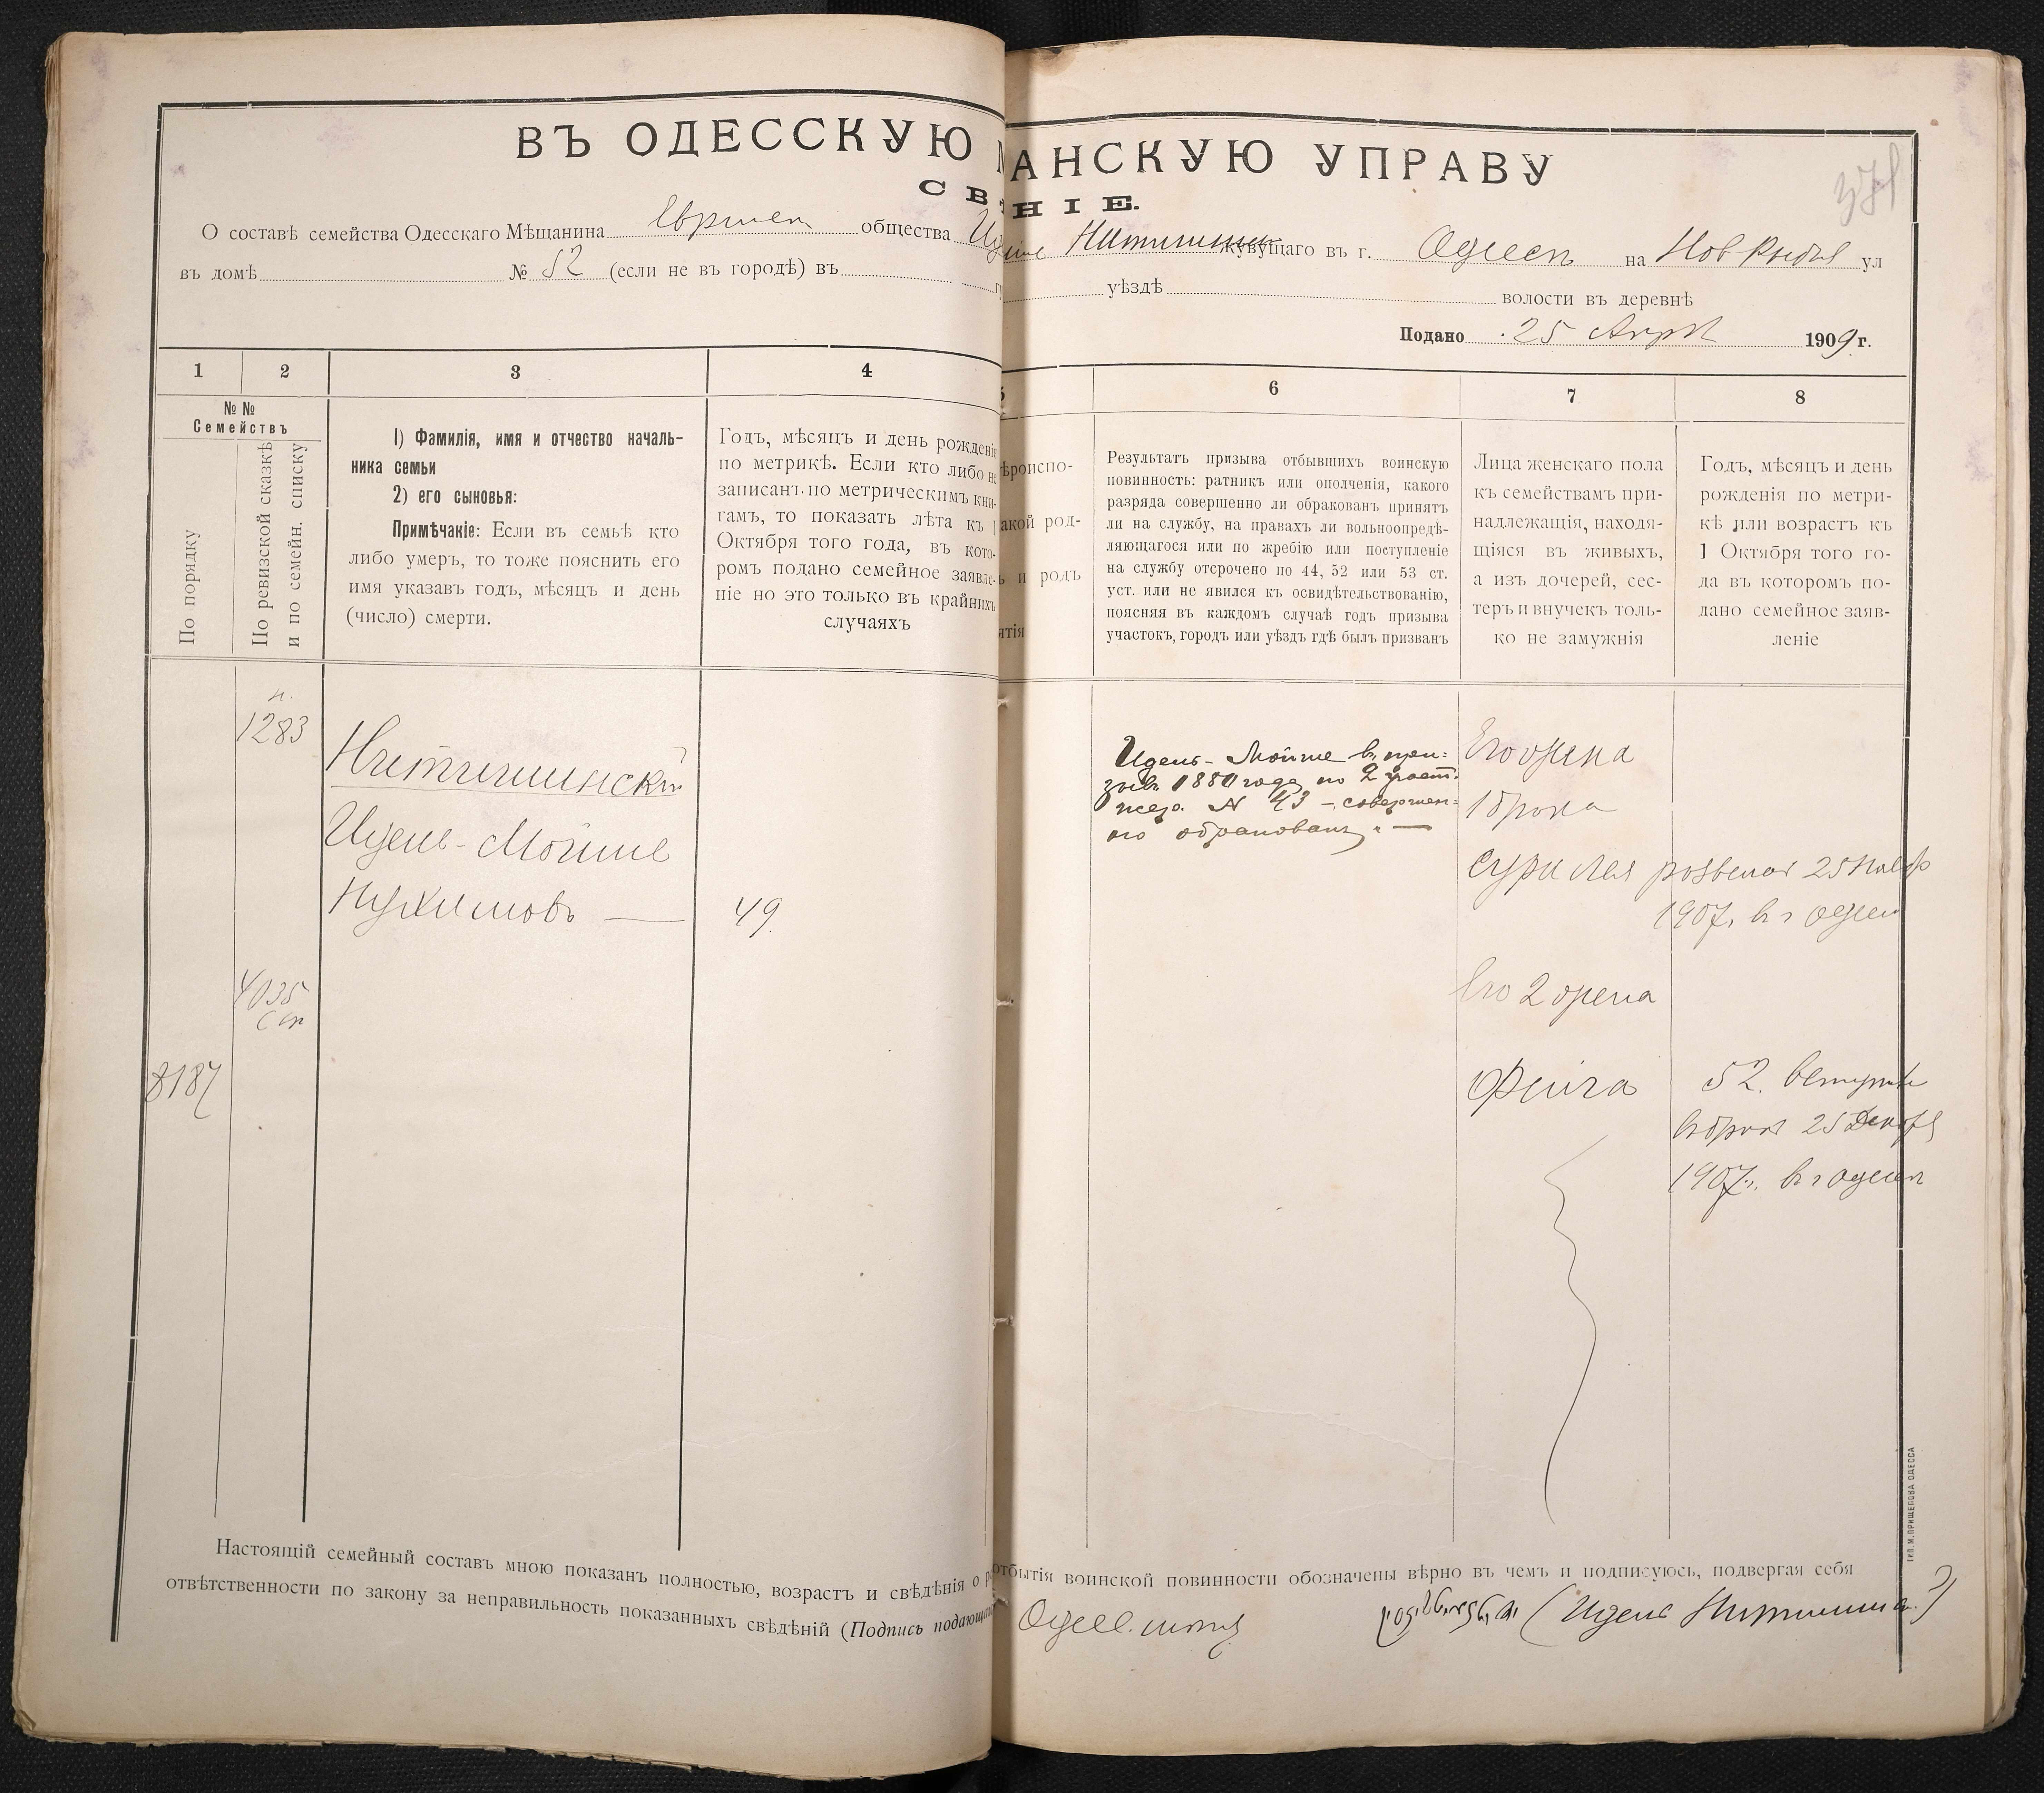 ВЪ ОДЕССКУЮ МАНСКУЮ УПРАВУ
СВ НІЕ.
371
О составѣ семейства Одесскаго Мѣщанина Еврей общества жувущаго въ г. Одессѣ на Нов Рыбн ул
въ домѣ № 52 (если не въ городѣ) въ уѣздѣ волости въ деревнѣ
Подано 25 Апр 1909 г.
1 2 3 4 5 6 7 8
№ №
Семействъ
По порядку
По ревизской сказкѣ
и по семейн. списку
1) Фамилія, имя и отчество началь-
ника семьи
2) его сыновья:
Примѣчаніе: Если въ семьѣ кто
либо умеръ, то тоже пояснить его
имя указавъ годъ, мѣсяцъ и день
(число) смерти.
Годъ, мѣсяцъ и день рожденія
по метрикѣ. Если кто либо не
записанъ по метрическимъ кни-
гамъ, то показать лѣта къ 1
Октября того года, въ кото-
ромъ подано семейное заявле-
ніе но это только въ крайнихъ
случаяхъ
ѣроиспо-
акой род-
ь и родъ
ятія
Результатъ призыва отбывшихъ воинскую
повинность: ратникъ или ополченія, какого
разряда совершенно ли обракованъ принятъ
ли на службу, на правахъ ли вольноопредѣ-
ляющагося или по жребію или поступленіе
на службу отсрочено по 44, 52 или 53 ст.
уст. или не явился къ освидѣтельствованію,
поясняя въ каждомъ случаѣ годъ призыва
участокъ, городъ или уѣздъ гдѣ былъ призванъ
Лица женскаго пола
къ семействамъ при-
надлежащія, находя-
щіяся въ живыхъ,
а изъ дочерей, сес-
теръ и внучекъ толь-
ко не замужнія
Годъ, мѣсяцъ и день
рожденія по метри-
кѣ или возрастъ къ
1 Октября того го-
да въ которомъ по-
дано семейное заяв-
леніе
1283
Нитишинскій
Идель-Мойше
Нухимовъ — 49
4035
8187
Идель-Мойше въ при-
зывъ 1880 года по 2 участ.
жер. № 43 - совершен-
но обракованъ. —
Его жена
1 брака
Сура Лея развелся 25 Нояб
1907 в г Одессѣ
Его 2 жена
Фейга 52. вступив
въ бракъ 25 Декабр
1907 в г Одессѣ
Настоящій семейный составъ мною показанъ полностью, возрастъ и свѣдѣнія о отбытія воинской повинности обозначены вѣрно въ чемъ и подписуюсь, подвергая себя
отвѣтственности по закону за неправильность показанныхъ свѣдѣній (Подпись подающ
Одесс. мѣщ.
ТИП. М. ПРИЩЕПОВА ОДЕССА